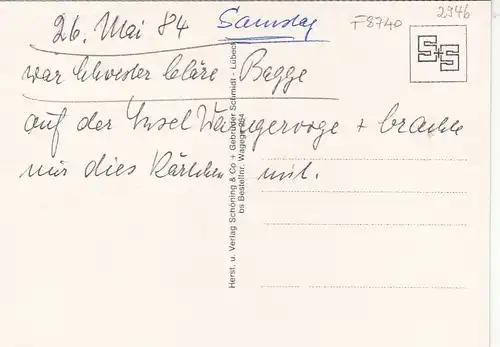 26. Mai 84 Samstag
F8740
2946
war Schwester Cläre Begge
auf der Insel Wangerooge + brachte
mir dies Kärtchen mit.
Herst. u. Verlag Schöning & Co + Gebrüder Schmidt - Lübeck
bs Bestellnr. Wagege 254
S+S